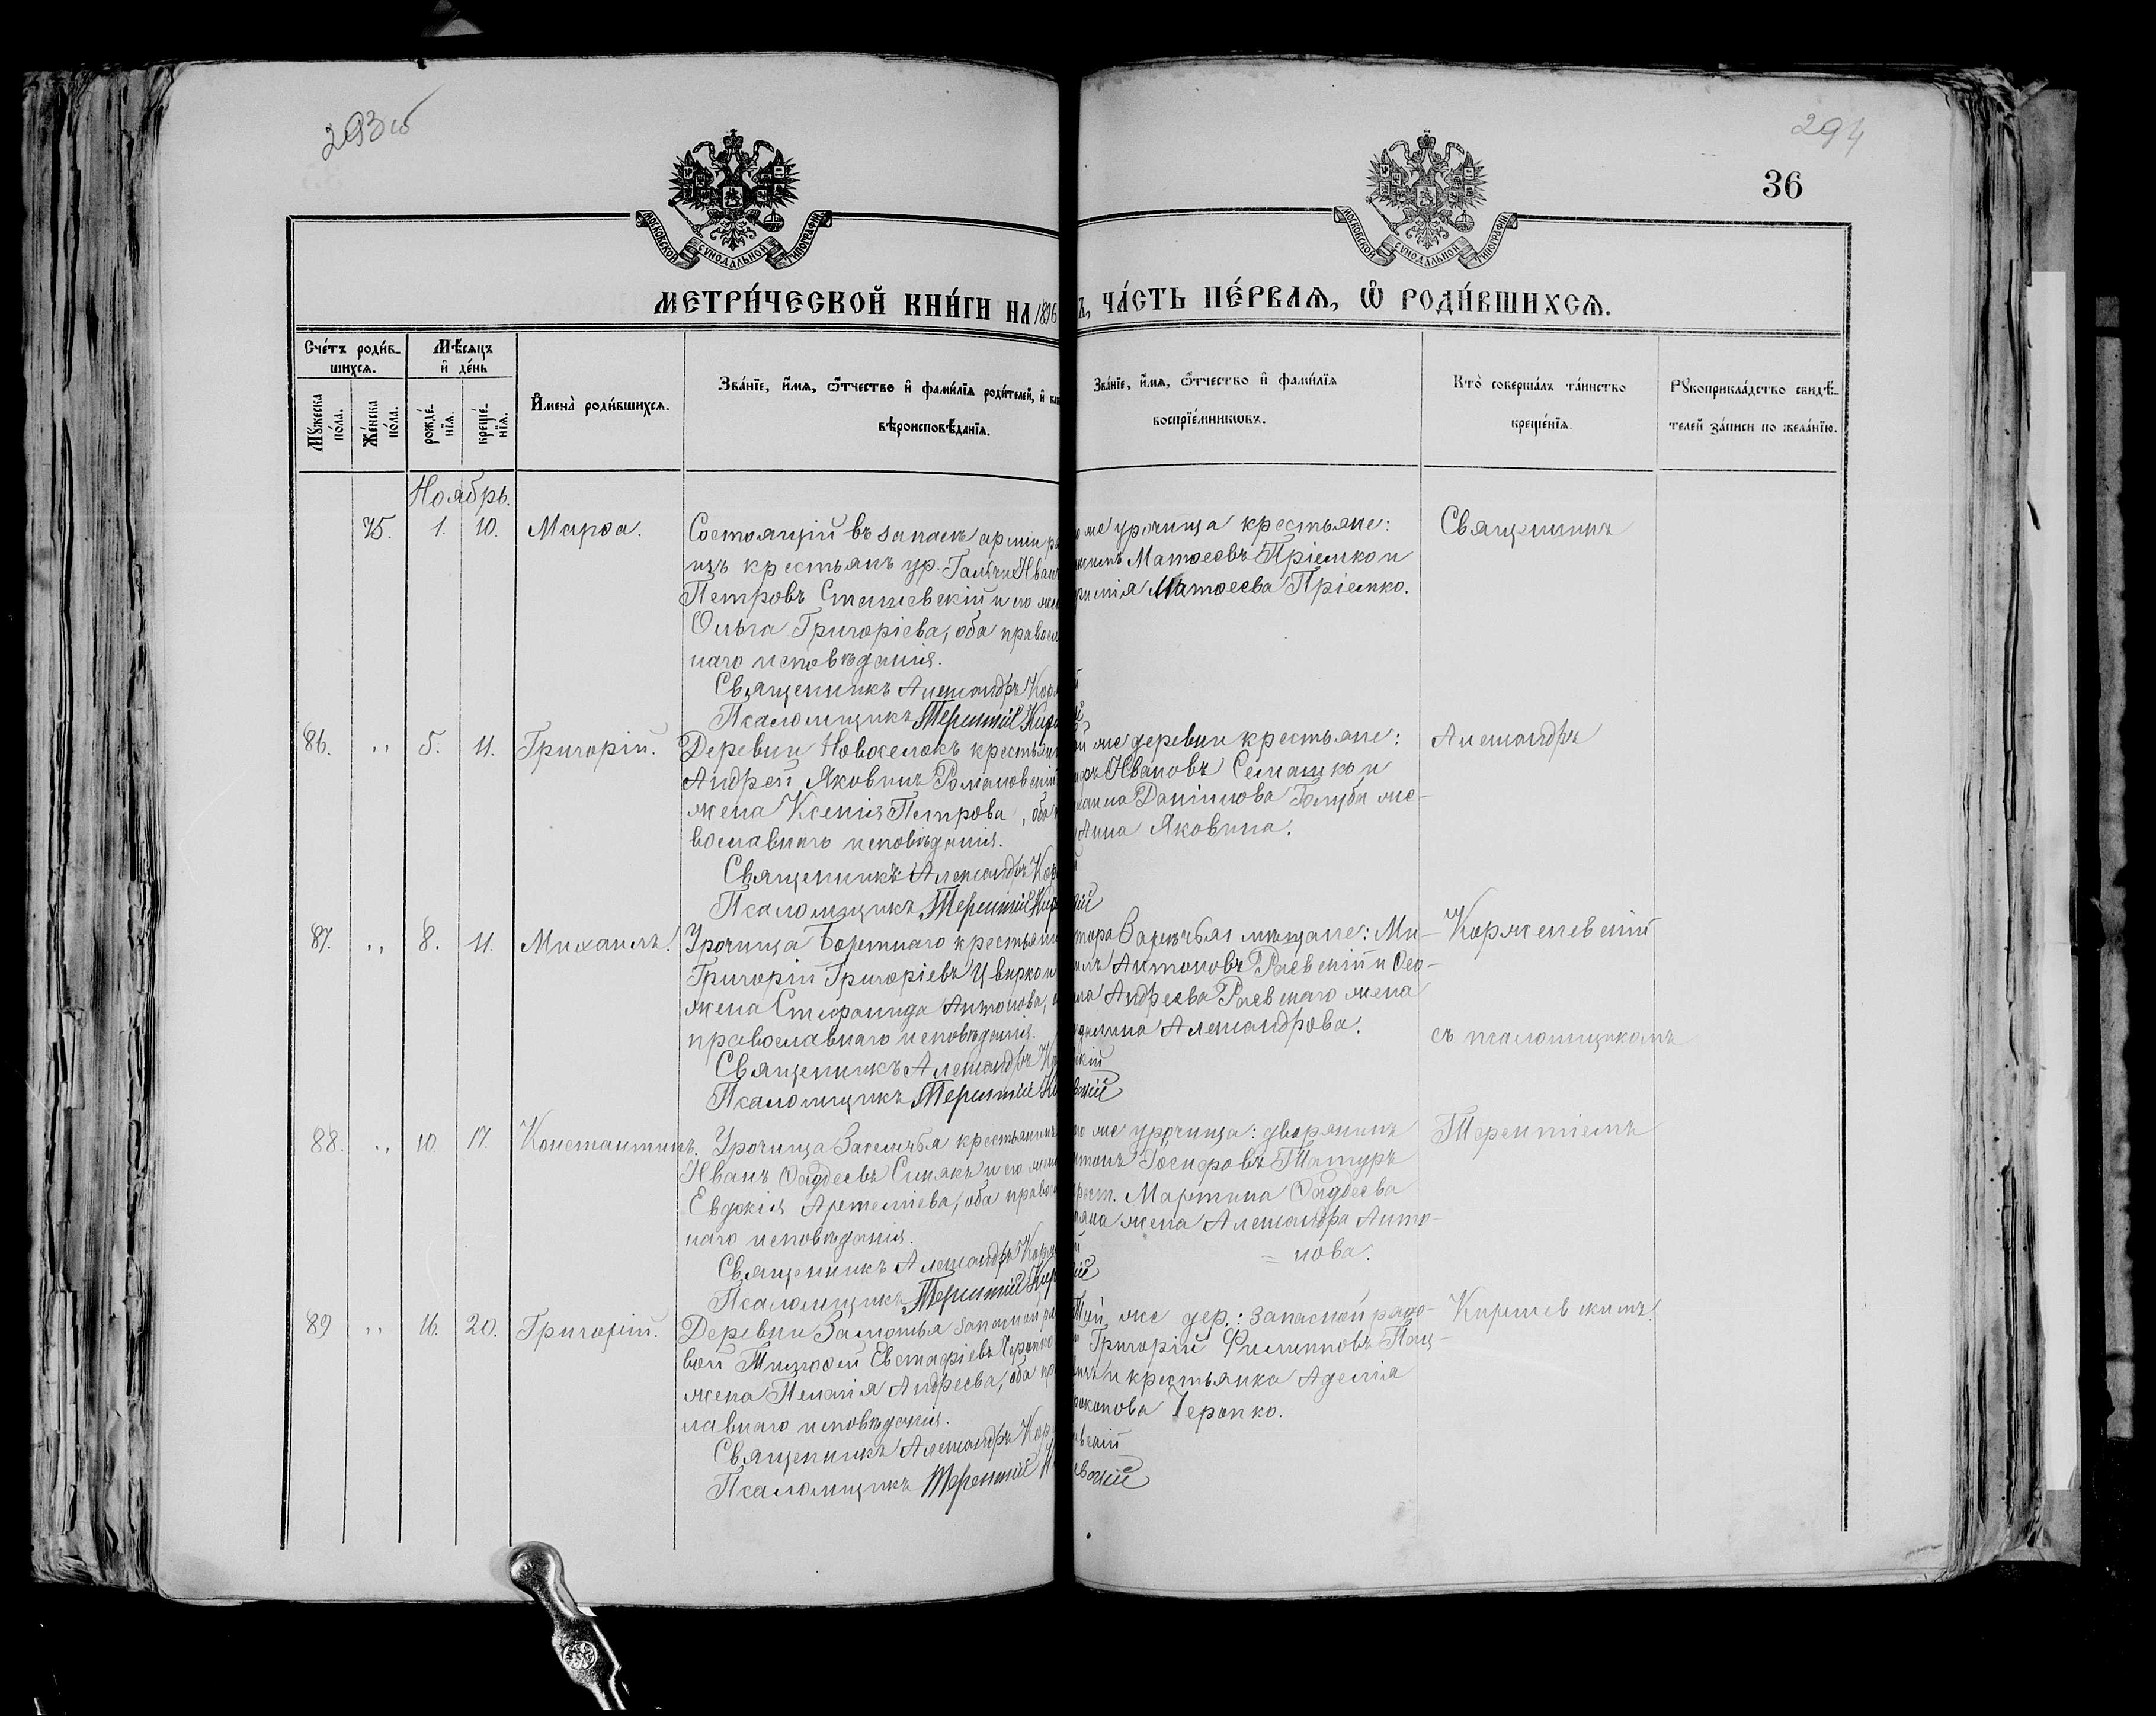 293об
294
36
МОСКОВСКОЙ СУНОДАЛЬНОЙ ТИПОГРАФІИ
МОСКОВСКОЙ СУНОДАЛЬНОЙ ТИПОГРАФІИ
МЕТРИ́ЧЕСКОЙ КНИ́ГИ НА 1896
Ъ, ЧА́СТЬ ПЕ́РВАѦ, Ѡ РОДИ́ВШИХСѦ.
Сче́тъ роди́в-
шихсѧ.
Мꙋжеска по́ла.
Же́нска по́ла.
Мѣ́сѧцъ
и҆ де́нь
рожде́-
нїѧ.
креще́-
нїѧ.
И҆мена̀ роди́вшихсѧ.
Зва́нїе, и҆́мѧ, ѻ҆́тчество и҆ фами́лїѧ роди́телей, и҆
вѣроисповѣ́данїѧ.
Зва́нїе, и҆́мѧ, ѻ҆́тчество и҆ фами́лїѧ
воспрїе́мникѡвъ.
Кто̀ соверша́лъ та́инство
креще́нїѧ.
Рꙋкоприкла́дство свидѣ́-
телей за́писи по жела́нїю.
Ноябрь.
75. 1. 10. Марѳа.
Состоящій въ запасѣ арміи
изъ крестьянъ ур. Иван
Петровъ Сташевскій и его
Ольга Григоріева, оба правосл
наго исповѣданія.
Священникъ Александръ Кор
Псаломщикъ Терентій Кир
же урочища крестьяне:
Матѳеевъ Пріемко и
Матѳеева Пріемко.
Священникъ
86. " 5. 11. Григорій.
Деревни Новоселокъ крестьян
Андрей Яковинъ Романовскій
жена Ксенія Петрова, оба
вославнаго исповѣданія.
Священникъ Александръ Кор
Псаломщикъ Терентій Кир
же деревни крестьяне:
Ивановъ Семашко и
Даніилова Голуба же-
Анна Яковина.
Александръ
87. " 8. 11. Михаилъ.
Урочища Бортнаго крестьян
Григорій Григоріевъ Цвирко и
жена Стефанида Антонова,
православнаго исповѣданія.
Священникъ Александръ Ко
Псаломщикъ Терентій Ки
мѣщане: Ми-
Антоновъ Раевскій и Ѳео-
Андреева Раевскаго жена
Александрова.
Корженевскій
съ псаломщикомъ
88. " 10. 17. Константинъ.
Урочища Заельчья крестьянинъ
Иванъ Ѳаддеевъ Синякъ и его
Евдокія Артеміева, оба правос
наго исповѣданія.
Священникъ Александръ Кор
Псаломщикъ Терентій Кир
же урочища: дворянинъ
Іосифовъ Татуръ
Мартина Ѳаддеева
жена Александра Анто-
= нова.
Терентіемъ
89 " 16. 20. Григорій.
Деревни Замостья запасной ря
вой Тимоѳей Евстафіевъ Черопко
жена Пелагія Андреева, оба
лавнаго исповѣданія.
Священникъ Александръ Кор
Псаломщикъ Терентій
Той же дер.: запасной рядо-
Григорій Филипповъ
и крестьянка Аделія
Черопко.
Киркевскимъ